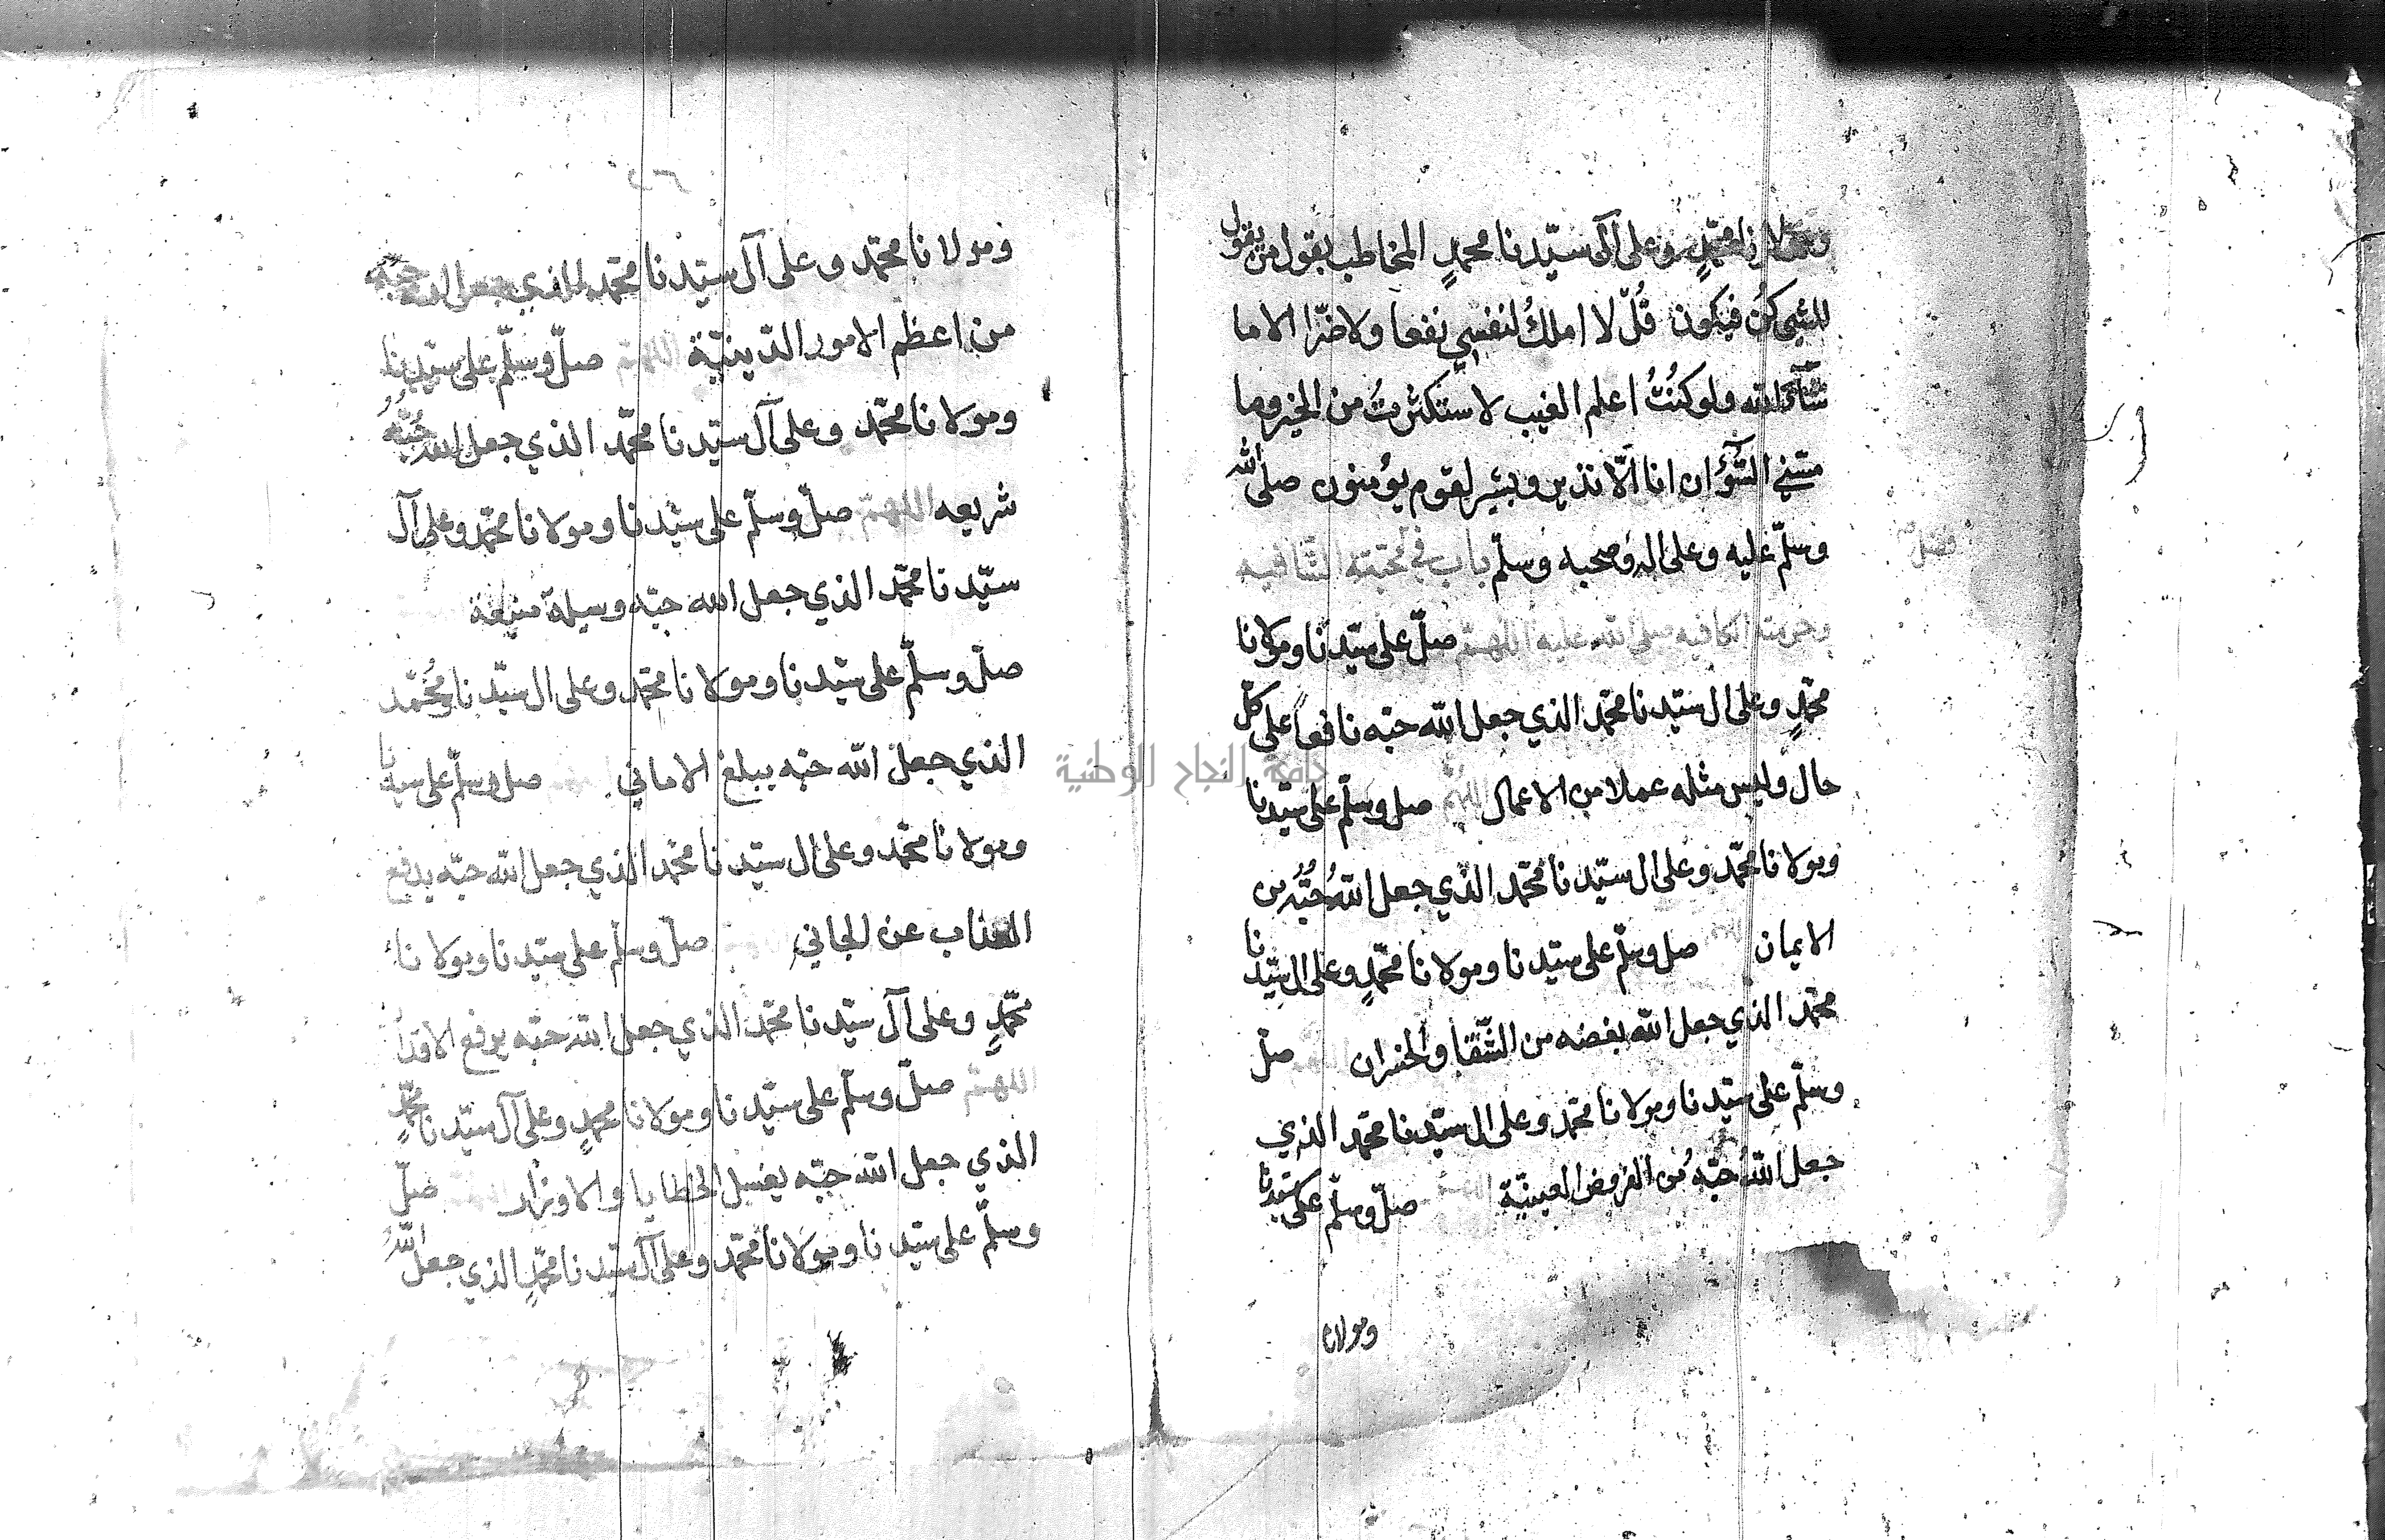 ومولانا محمدٍ وعلى آل سيّدنا محمدٍ المخاطب بقول من يقول
للشي كُن فيكون قُل لا املكُ لنفسي نفعا ولا ضرّا الا ما
شآء الله ولو كنُتُ اعلم الغيب لا ستكثرتُ من الخير وما
مسّني السّوٓء ان انا الّا نذير وبشير لقوم يوُمنون صلى الله
وسلّم عليه وعلى اله وصحبه وسلّم باب في محبته الشافيه
فصل
صلى الله عليه اللهم صلّ على سيّدنا ومولانا
محمّدٍ وعلى ال سيّدنا محمّد الذي جعل الله حبّه نافعاً على كلّ
حال وليس مثله عملا من الاعمال اللهم صل وسلّم على سيّدنا
ومولانا محمّد وعلى ال سيّدنا محمّد الذي جعل اللهُ حُبُّه من
الايمان صل وسلّم على سيّدنا ومولانا محمّدٍ وعلى ال سيّدنا
محمّد الذي جعل الله بغضه من الشّقا والخسران صلّ
وسلّم على سيّدنا ومولانا محمّد وعلى ال سيّدنا محمّد الذي
جعل اللهُ حبّه من الفروض العينيّة صلّ وسلّم على سيّدنا
ومولانا
ومولانا محمّد وعلى آل سيّدنا محمّد الذي جعل الله حبّه
من اعظم الامور الدّينيّة اللهم صلّ وسلّم على سيّدنا
ومولانا محمّد وعلى آل سيّدنا محمّد الذي جعل الله حُبّهُ
شريعه اللهم صلّ وسلّم على سيّدنا ومولانا محمّد وعلى آل
سيّدنا محمّد الذي جعل الله حبّه وسيلة منيعة
صلّ وسلّم على سيّدنا ومولانا محمّد وعلى ال سيّدنا محُمّد
الذي جعل الله حبّه يبلغ الاماني صل وسلّم على سيدنا
ومولانا محمّد وعلى ال سيّدنا محمّد الذي جعل الله حبّه يدفع
العذاب عن الجاني صلّ وسلّم على سيّدنا ومولانا
محمّدٍ وعلى آل سيّدنا محمّد الذي جعل الله حبّه يرفع الاقدار
اللهم صلّ وسلّم على سيّدنا ومولانا محمدٍ وعلى آل سيّدنا محمّدٍ
الذي جعل الله حبّه يغسل الخطايا والاوزار صلّ
وسلّم على سيّدنا ومولانا محمّد وعلى آل سيّدنا محمّدٍ الذي جعل اللهُ
جامعة النجاح الوطنية